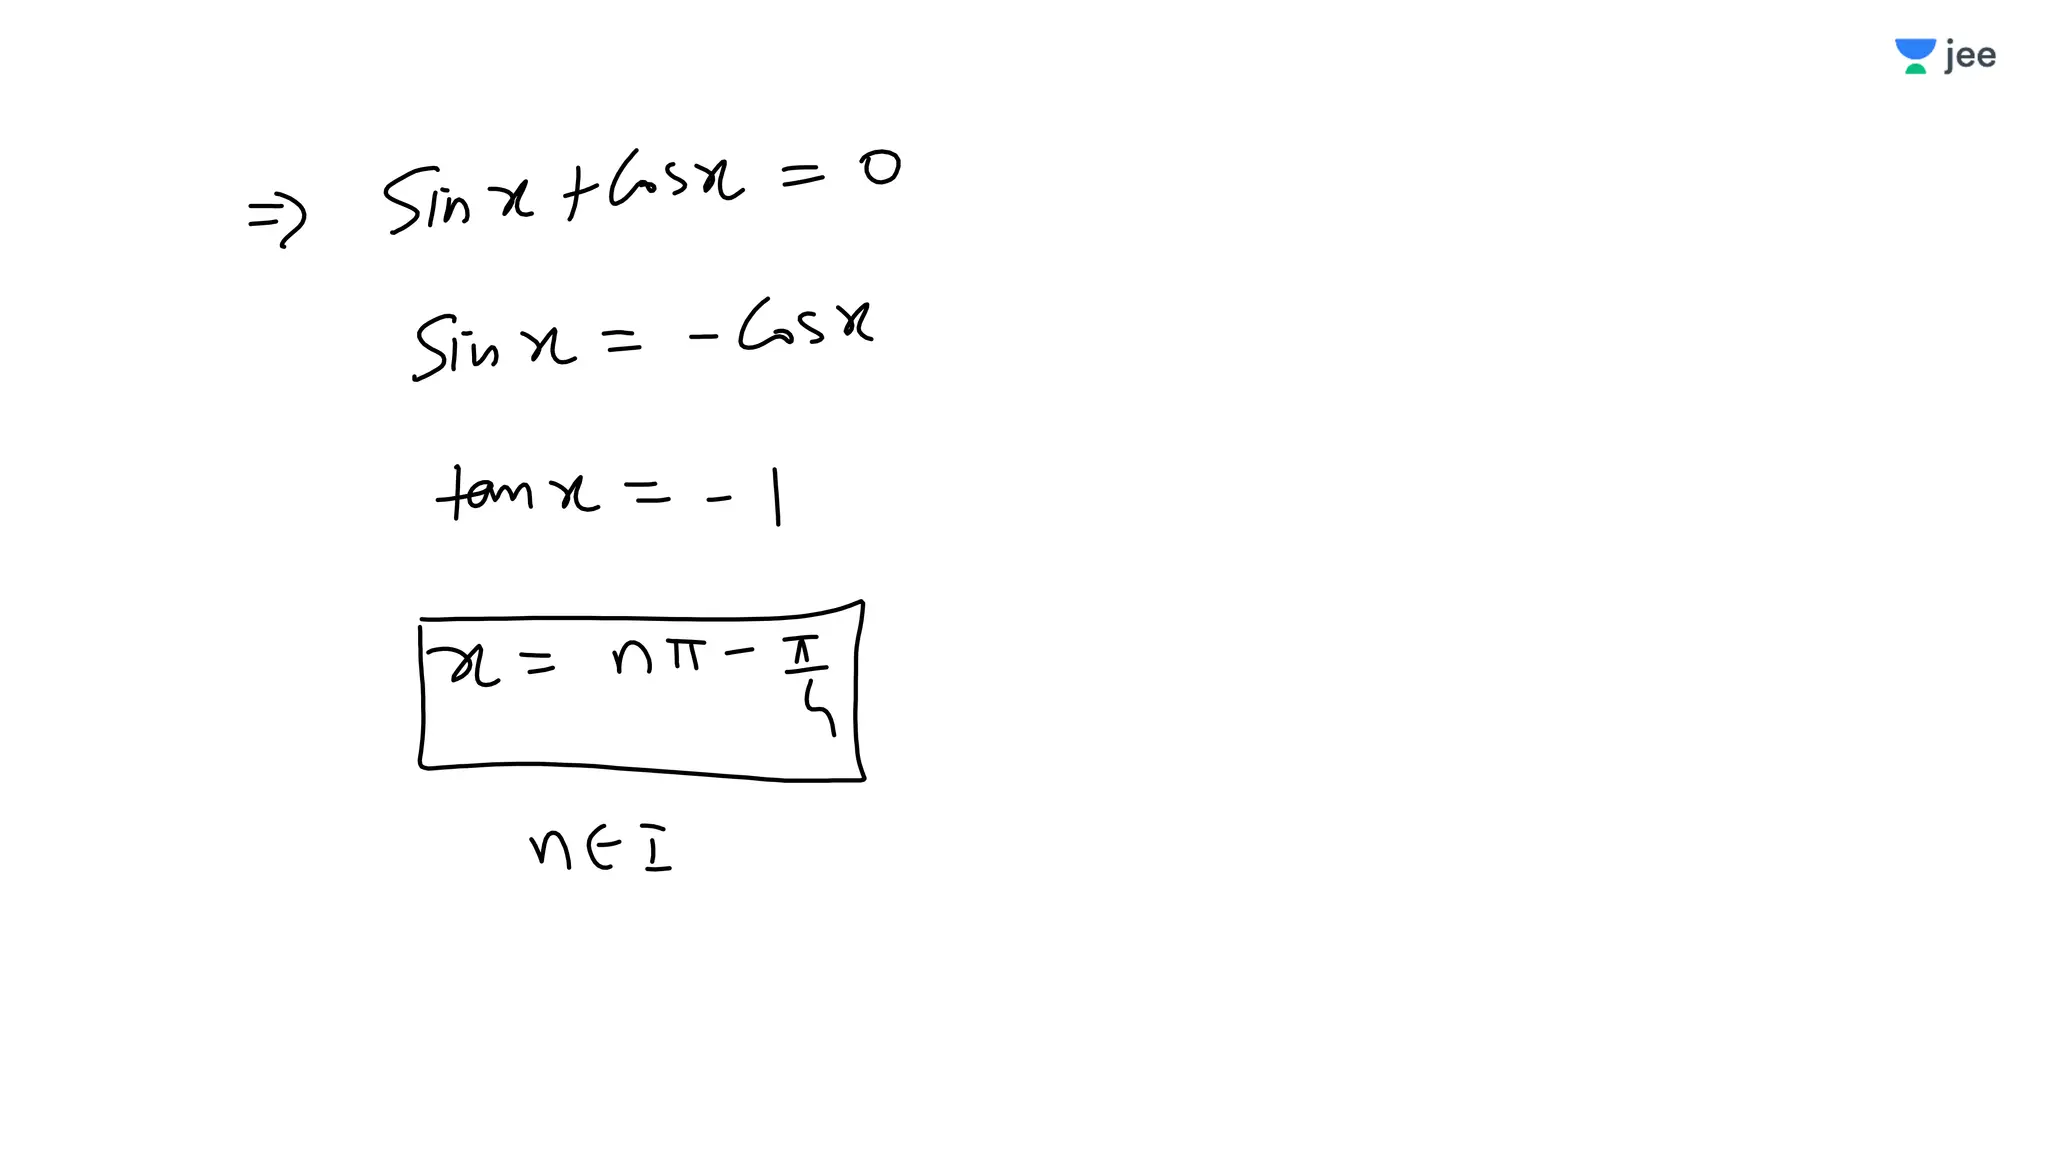 jee
⇒ Sin x + Cos x = 0
Sin x = - Cos x
tan x = - 1
x = nπ - π/4
n ∈ I